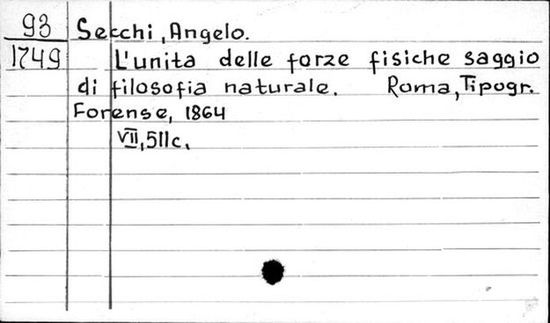 93 Secchi, Angelo.
1749 L'unita delle forze fisiche saggio
di filosofia naturale. Roma, Tipogr.
Forense, 1864
VII, 511c.